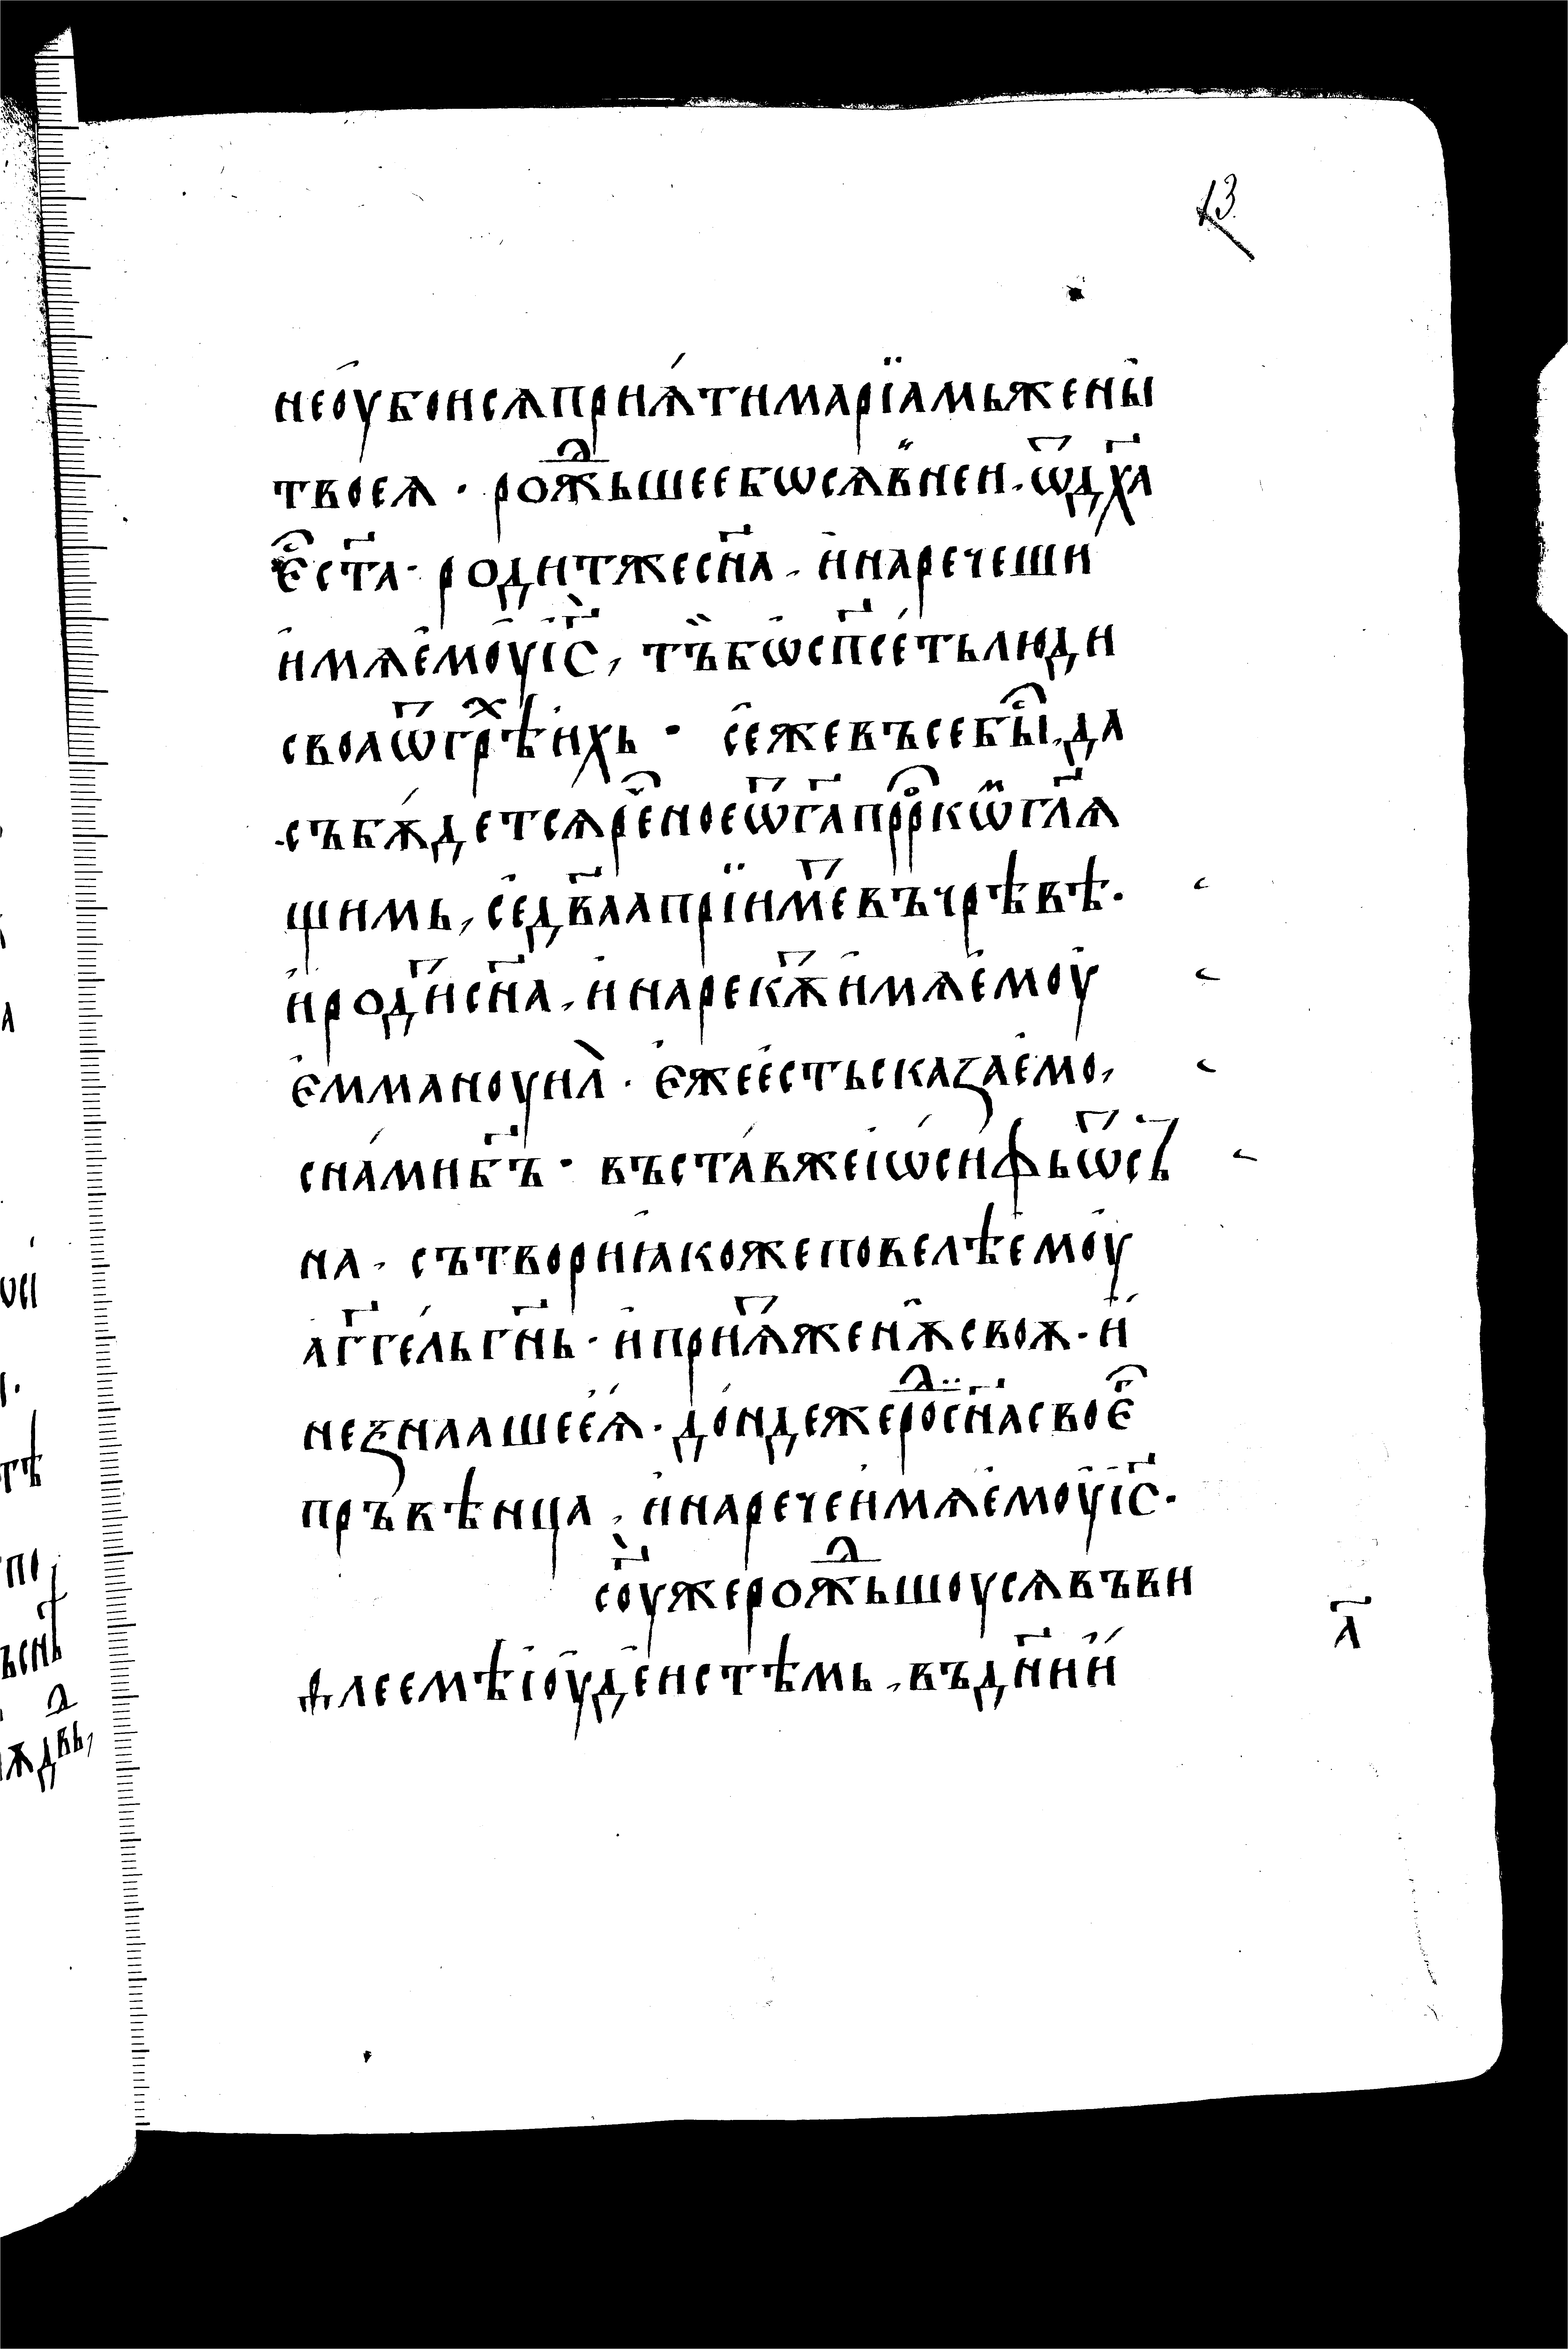 13
не оу҆боисѧ прнѧ́ти марїамь жены
твоеѧ · рождьшее бѡ сѧ в̾ нен · ѿ дх҃а
є҆ст҃а · родит же сн҃а , и҆ наречеши
и҆мѧ е҆моу҆ і҆с҃ , тъ̀ бѡ сп҃се́ть люди
своа ѿ грѣхи́хь · се҆ же въсе бы́ , да
събѫ́детсѧ ре҆ное ѿ г҃а пррⷪкѡм гл҃ѧ
щимь , се҆ дв҃аа прїимⷮе въ чрѣвѣ ·
и҆ родⷮи сн҃а , и҆ нарекѫⷮ и҆мѧ е҆моу҆
е҆мманоуил̀ · є҆же е҆сть сказае҆мо ,
с на́ми бг҃ъ · въста́в же і҆ѡ́сифь ѿ съ
на , сътвори ꙗ҆коже повелѣ е҆моу҆
а҆г҃ге́ль гн҃ь · и҆ приѧⷮ женѫ̑ своѫ · и҆
не ꙁнааше е҆ѧ̀ · до́ндеже ро сн҃а своеⷢ҇
пръвѣнца , и҆ нарече и҆мѧ е҆моу҆ і҆с҃ ·
і҆с҃оу же рождьшоусѧ въ ви
ѳлеемѣ і҆оу҆де҆истѣмь , въ дн҃и и҆
а҃